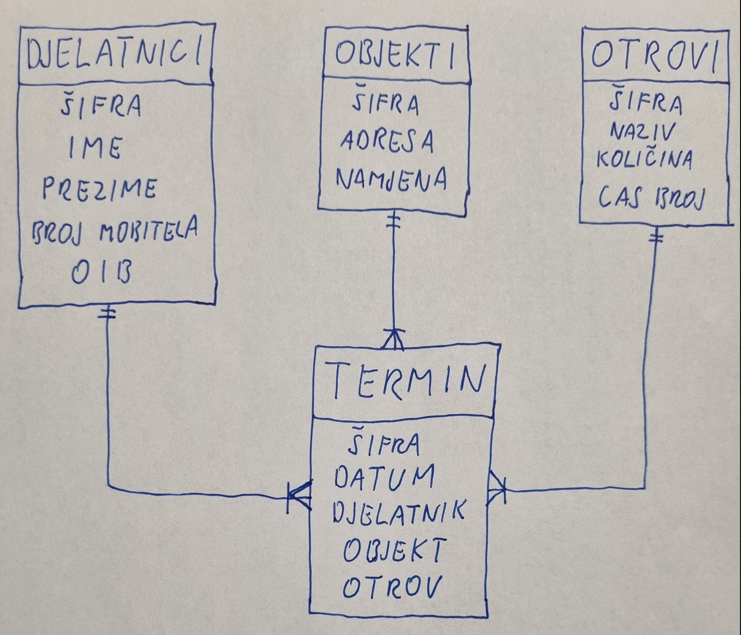 DJELATNICI
ŠIFRA
IME
PREZIME
BROJ MOBITELA
OIB
OBJEKTI
ŠIFRA
ADRESA
NAMJENA
OTROVI
ŠIFRA
NAZIV
KOLIČINA
CAS BROJ
TERMIN
ŠIFRA
DATUM
DJELATNIK
OBJEKT
OTROV